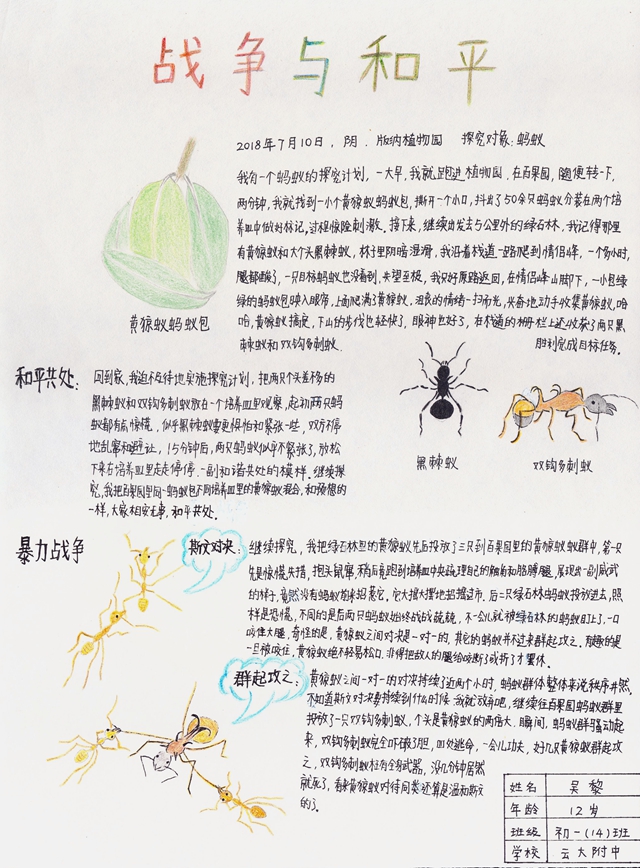 战争与和平
2018年7月10日，阴．版纳植物园 探究对象：蚂蚁
我有一个蚂蚁的探究计划，一大早，我就跑进植物园．在百果园，随便转一下，
两分钟，我就找到一小个黄猄蚁蚂蚁包，撕开一个小口，抖出了50余只蚂蚁分装在两个培
养皿中做好标记，过程惊险刺激。接下来，继续出发去与公里外的绿石林，我记得那里
有黄猄蚁和大个头黑棘蚁，林子里阴暗湿滑，我沿着栈道一路爬到情侣峰，一个多小时，
腿都酸了，一只目标蚂蚁也没看到，失望至极，我只好原路返回，在情侣峰山脚下，一小包绿
绿的蚂蚁包映入眼帘，上面爬满了黄猄蚁，沮丧的情绪一扫而光，兴奋地动手收集黄猄蚁，哈
哈，黄猄蚁搞定，下山的步伐也轻快了，眼神也好了，在栈道的栅栏上还收获了两只黑
棘蚁和双钩多刺蚁． 胜利完成目标任务．
黄猄蚁蚂蚁包
和平共处：
回到家，我迫不及待地实施探究计划，把两只个头差不多的
黑棘蚁和双钩多刺蚁放在一个培养皿里观察，起初两只蚂
蚁都有点惊慌，似乎黑棘蚁要更惧怕和紧张一些，双方不停
地乱窜和避让，15分钟后，两只蚂蚁似乎不紧张了，放松
下来在培养皿里走走停停．一副和谐共处的模样．继续探
究，我把百果园里同一蚂蚁包不同培养皿里的黄猄蚁混合，和预想的
一样，大家相安无事，和平共处．
黑棘蚁
双钩多刺蚁
暴力战争
斯文对决：
继续探究，我把绿石林里的黄猄蚁先后投放了三只到百果园里的黄猄蚁蚁群中，第一只
先是惊慌失措，抱头鼠窜，稍后竟跑到培养皿中央梳理自己的触角和胳膊腿，展现出一副威武
的样子，竟然没有蚂蚁前来招惹它，它大摇大摆地招摇过市．后二只绿石林蚂蚁投放进去，照
样是恐慌，不同的是后两只蚂蚁始终战战兢兢，不一会儿就被绿石林的蚂蚁盯上了，一口
咬住大腿，奇怪的是，黄猄蚁之间对决是一对一的，其它的蚂蚁并不过来群起攻之．有趣的是
一旦被咬住，黄猄蚁绝不轻易松口，非得把敌人的腿给咬断了或折了才罢休．
群起攻之：
黄猄蚁之间一对一的对决持续了近两个小时，蚂蚁群体整体来说秩序井然，
不知道斯文对决要持续到什么时候，我就放弃吧，继续往百果园蚂蚁群里
投放了一只双钩多刺蚁，个头是黄猄蚁的两倍大，瞬间，蚂蚁群骚动起
来，双钩多刺蚁完全吓破了胆，四处逃命，一会儿功夫，好几只黄猄蚁群起攻
之，双钩多刺蚁枉有全身武器，没几分钟居然
就死了，看来黄猄蚁对待同类还算是温和斯文
的了．
姓名 吴黎
年龄 12岁
班级 初一(14)班
学校 云大附中